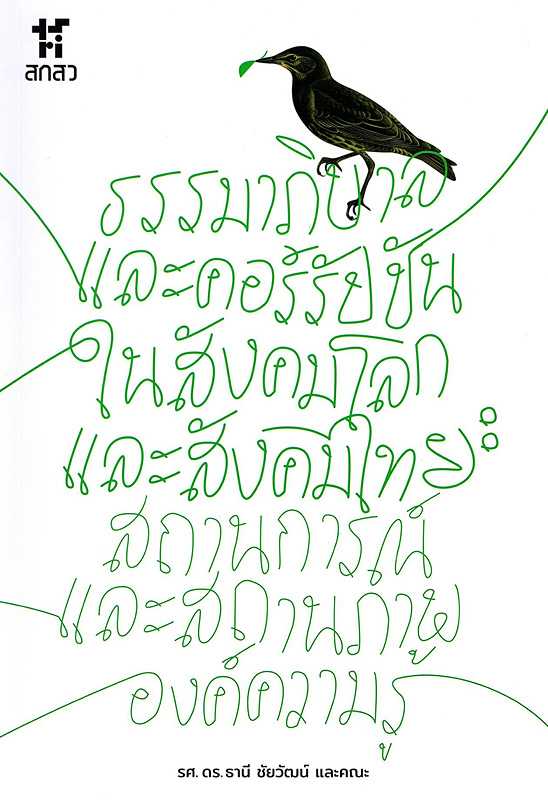 สกสว
ธรรมาภิบาล
และคอร์รัปชัน
ในสังคมโลก
และสังคมไทย:
สถานการณ์
และสถานภาพ
องค์ความรู้
รศ. ดร. ธานี ชัยวัฒน์ และคณะ